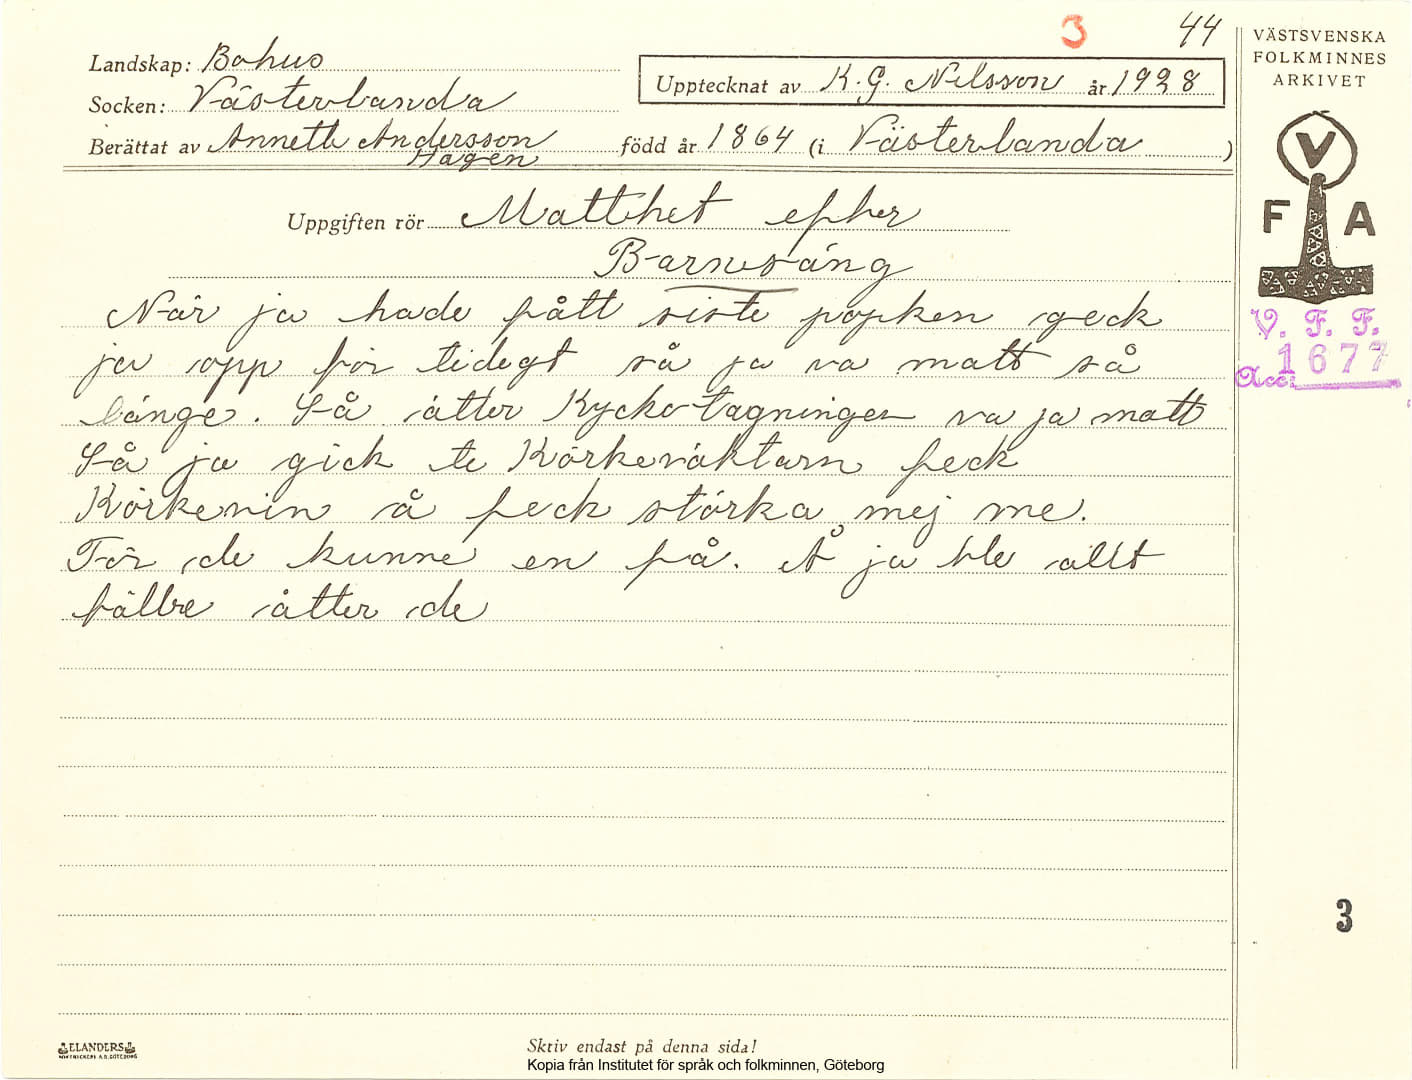 3 44
Landskap: Bohus
Socken: Västerlanda
Upptecknat av K. G. Nilsson år 1928
Berättat av Anneth Andersson
Hagen
född år 1864 (i Västerlanda)
Uppgiften rör Matthet efter
Barnsäng
När ja hade fått siste pojken geck
ja opp för tidegt så ja va matt så
länge. Så åtter Kycko-tagningen va ja matt
Så ja gick te Körkeväktarn feck
Körkevin å feck stärka mej me.
För de kunne en få. Å ja ble allt
bälbre åtter de
VÄSTSVENSKA
FOLKMINNES
ARKIVET
V
F A
V. F. F.
Acc: 1677
3
ELANDERS
Skriv endast på denna sida!
Kopia från Institutet för språk och folkminnen, Göteborg